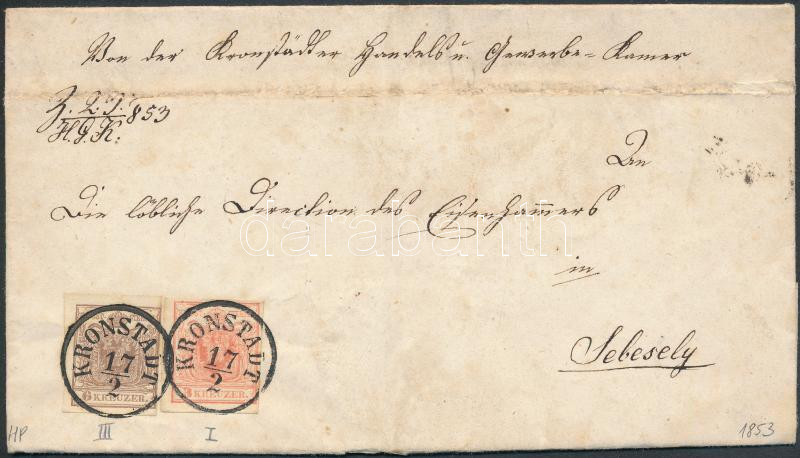 Von der Kronstädter Handels u. Gewerbe-Kamer
Z. 27. 853
H. G. K:
An
Die löbliche Direction des Eisenhammers
in
Sebesely
darabanth
KRONSTADT
17
2
6 KREUZER.
KRONSTADT
17
2
3 KREUZER.
HP
III
I
1853